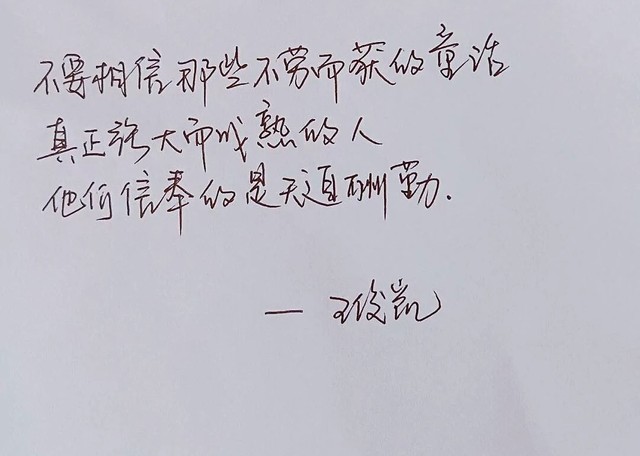 不要相信那些不劳而获的童话
真正强大而成熟的人
他们信奉的是天道酬勤.
— 王俊凯